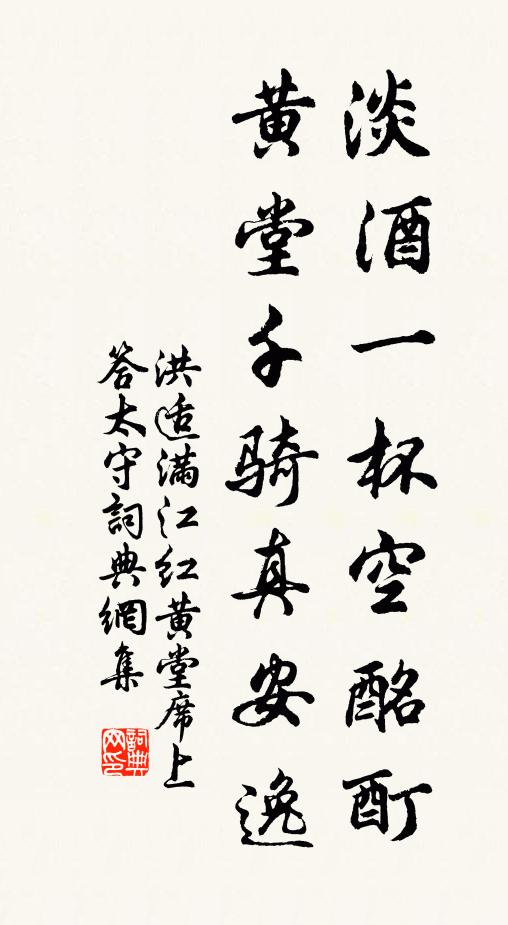 淡酒一杯空酩酊
黄堂千骑真安逸
洪适满江红黄堂席上
答太守詞典網集
詞典网印